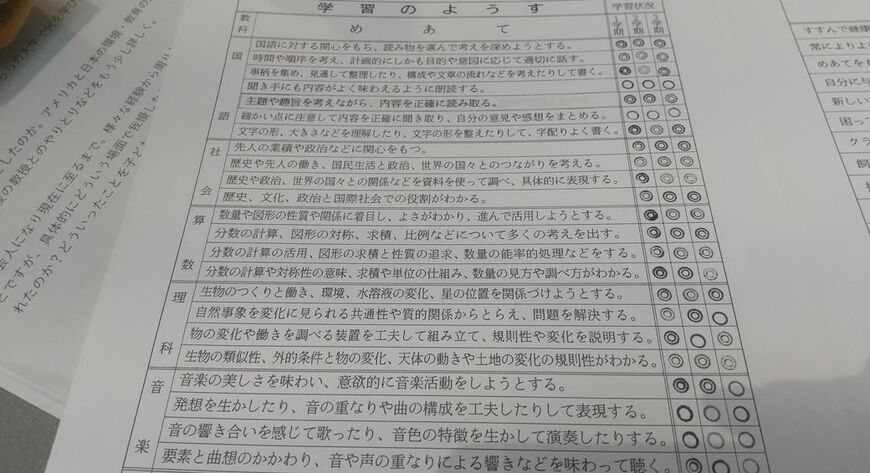 学習のようす
学習状況
教科
めあて
1学期
2学期
3学期
国語
国語に対する関心をもち、読み物を選んで考えを深めようとする。
時間や順序を考え、計画的にしかも目的や意図に応じて適切に話す。
事柄を集め、見通して整理したり、構成や文章の流れなどを考えたりして書く。
聞き手にも内容がよく味わえるように朗読する。
主題や趣旨を考えながら、内容を正確に読み取る。
細かい点に注意して内容を正確に聞き取り、自分の意見や感想をまとめる。
文字の形、大きさなどを理解したり、文字の形を整えたりして、字配りよく書く。
社会
先人の業績や政治などに関心をもつ。
歴史や先人の働き、国民生活と政治、世界の国々とのつながりを考える。
歴史や政治、世界の国々との関係などを資料を使って調べ、具体的に表現する。
歴史、文化、政治と国際社会での役割がわかる。
算数
数量や図形の性質や関係に着目し、よさがわかり、進んで活用しようとする。
分数の計算、図形の対称、求積、比例などについて多くの考えを出す。
分数の計算の活用、図形の求積と性質の追求、数量の能率的処理などをする。
分数の計算や対称性の意味、求積や単位の仕組み、数量の見方や調べ方がわかる。
理科
生物のつくりと働き、環境、水溶液の変化、星の位置を関係づけようとする。
自然事象を変化に見られる共通性や質的関係からとらえ、問題を解決する。
物の変化や働きを調べる装置を工夫して組み立て、規則性や変化を説明する。
生物の類似性、外的条件と物の変化、天体の動きや土地の変化の規則性がわかる。
音楽
音楽の美しさを味わい、意欲的に音楽活動をしようとする。
発想を生かしたり、音の重なりや曲の構成を工夫したりして表現する。
音の響き合いを感じて歌ったり、音色の特徴を生かして演奏したりする。
要素と曲想のかかわり、音や声の重なりによる響きなどを味わって聴く。
すすんで健康
常によりよ
めあてをも
自分に与
新しい
困っ
クラ
したのか。アメリカと日本の環境・教育の
の教授とのやりとりなどをもう少し詳しく。
会人になり現在に至るまで。様々な経験から周り
とですが、具体的にどういう場面で我慢した
れたのか？どういったことを子ど